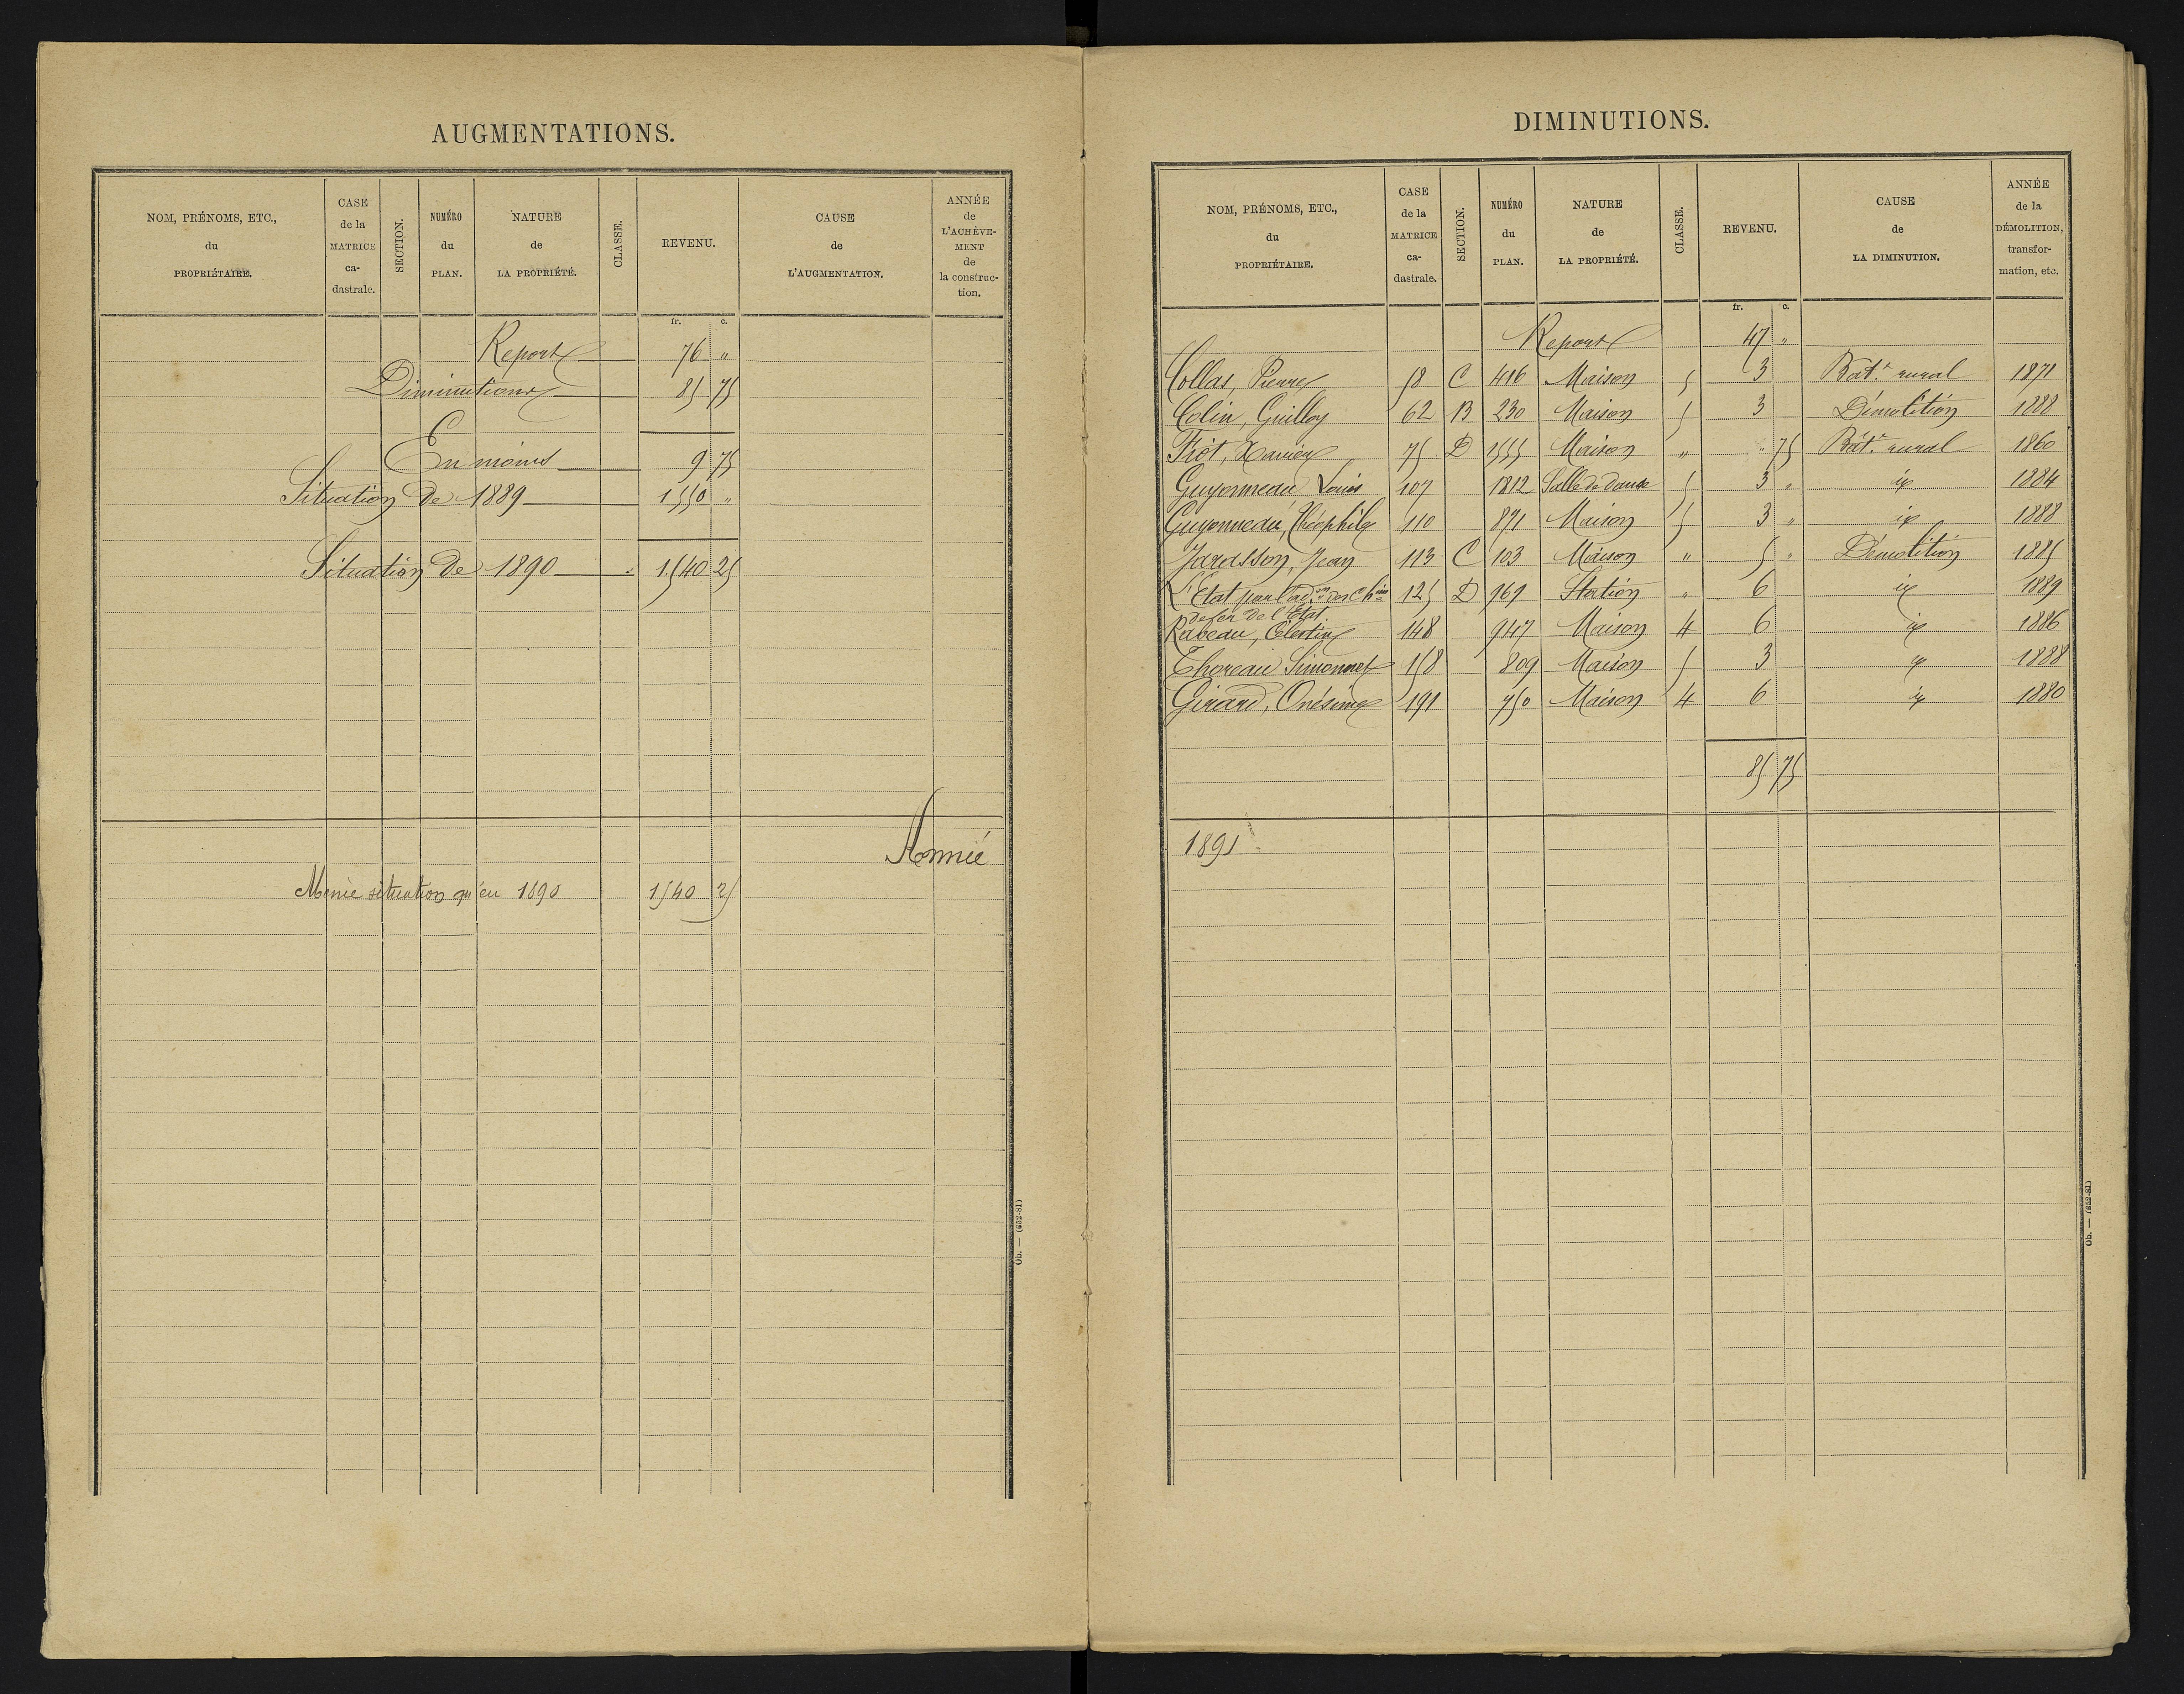 AUGMENTATIONS.
NOM, PRÉNOMS, ETC., du PROPRIÉTAIRE. | CASE de la MATRICE ca-dastrale. | SECTION. | NUMÉRO du PLAN. | NATURE de LA PROPRIÉTÉ. | CLASSE. | REVENU. | CAUSE de L'AUGMENTATION. | ANNÉE de L'ACHÈVE-MENT de la construc-tion.
fr. c.
Report 76 "
Diminutions 85 75
En moins 9 75
Situation de 1889 1550 "
Situation de 1890 1540 25
Année
Même situation qu'en 1890 1540 25
Ob. — (652-81)
DIMINUTIONS.
NOM, PRÉNOMS, ETC., du PROPRIÉTAIRE. | CASE de la MATRICE ca-dastrale. | SECTION. | NUMÉRO du PLAN. | NATURE de LA PROPRIÉTÉ. | CLASSE. | REVENU. | CAUSE de LA DIMINUTION. | ANNÉE de la DÉMOLITION, transfor-mation, etc.
fr. c.
Report 47 "
Collas, Pierre 58 C 416 Maison 5 3 Bât.t rural 1871
Colin, Guilloy 62 B 230 Maison 5 3 Démolition 1888
Fiot, Xavier 75 D 1555 Maison " " 75 Bât.t rural 1860
Guyonneau Louis 107 1812 Salle de danse 5 3 " id 1884
Guyonneau, Théophile 110 871 Maison 5 3 " id 1888
Jarasson, Jean 113 C 103 Maison " 5 " Démolition 1885
L'Etat par l'ad.on des Ch.ins 125 D 969 Station " 6 id 1889
de fer de l'Etat
Rabeau, Célestin 148 947 Maison 4 6 id 1886
Thoreau Simonnet 158 809 Maison 5 3 id 1888
Girard, Onésime 191 750 Maison 4 6 id 1880
85 75
1891
Ob. — (652-81)